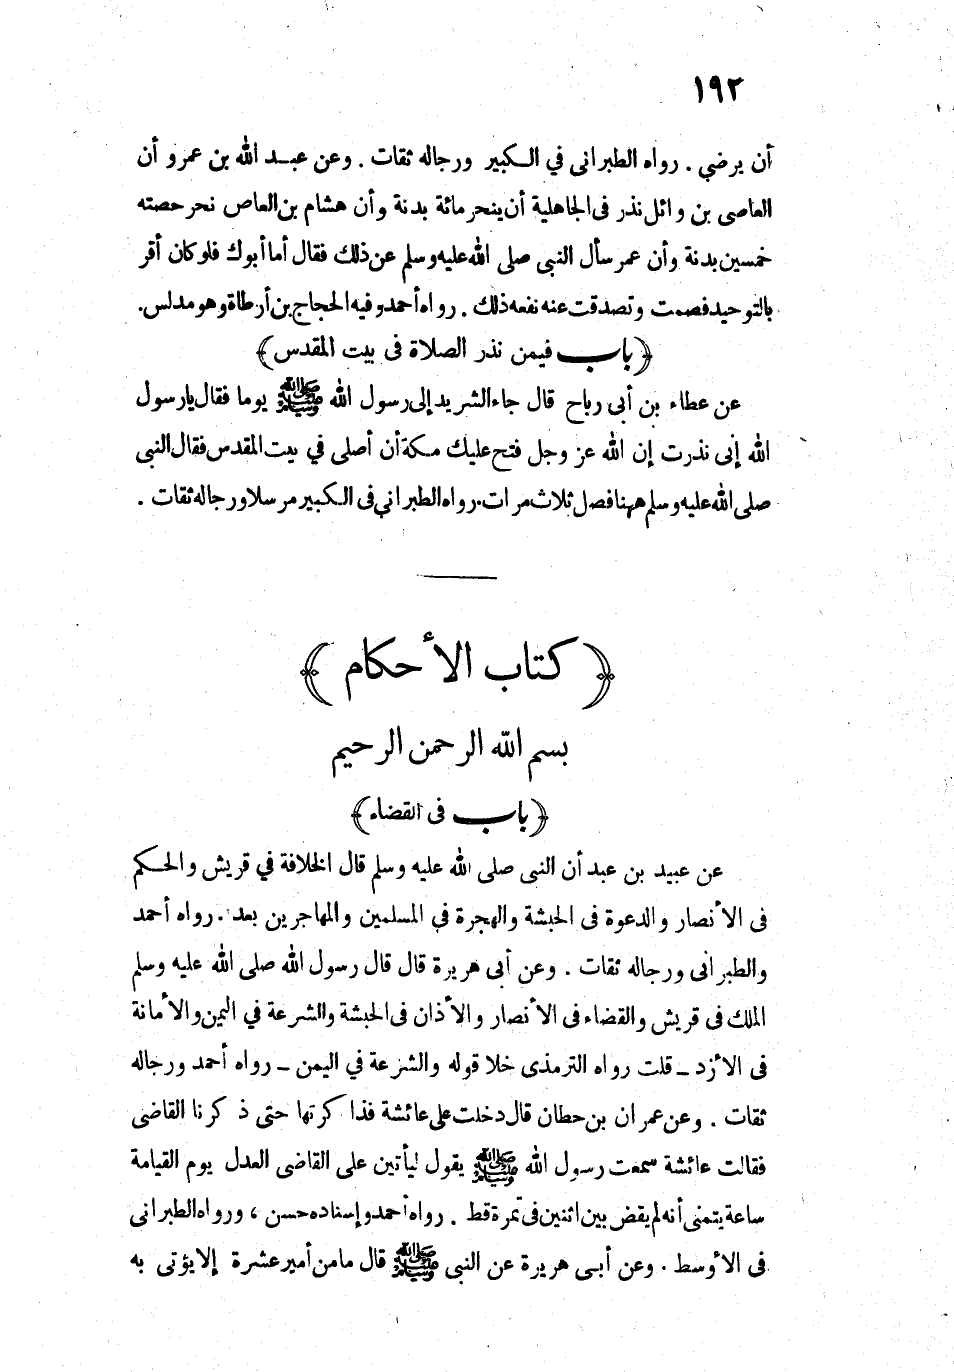 ١٩٢
أن يرضي . رواه الطبراني في الكبير ورجاله ثقات . وعن عبد الله بن عمرو أن
العاصى بن وائل نذر فى الجاهلية أن ينحر مائة بدنة وأن هشام بن العاص نحر حصته
خمسين بدنة وأن عمر سأل النبى صلى الله عليه وسلم عن ذلك فقال أما أبوك فلو كان أقر
بالتوحيد فصمت وتصدقت عنه نفعه ذلك . رواه أحمد وفيه الحجاج بن أرطاة وهو مدلس.
﴿باب فيمن نذر الصلاة فى بيت المقدس﴾
عن عطاء بن أبى رباح قال جاء الشريد إلى رسول الله ﷺ يوما فقال يا رسول
الله إنى نذرت إن الله عز وجل فتح عليك مكة أن أصلى في بيت المقدس فقال النبى
صلى الله عليه وسلم ههنا فصل ثلاث مرات. رواه الطبراني فى الكبير مرسلا ورجاله ثقات .
﴿كتاب الأحكام﴾
بسم الله الرحمن الرحيم
﴿باب فى القضاء﴾
عن عبيد بن عبد أن النبى صلى الله عليه وسلم قال الخلافة في قريش والحكم
فى الأنصار والدعوة فى الحبشة والهجرة في المسلمين والمهاجرين بعد . رواه أحمد
والطبرانى ورجاله ثقات . وعن أبى هريرة قال قال رسول الله صلى الله عليه وسلم
الملك فى قريش والقضاء فى الأنصار والأذان فى الحبشة والشرعة في اليمن والأمانة
فى الأزد ــ قلت رواه الترمذى خلا قوله والشرعة في اليمن ــ رواه أحمد ورجاله
ثقات . وعن عمران بن حطان قال دخلت على عائشة فذاكرتها حتى ذكرنا القاضى
فقالت عائشة سمعت رسول الله ﷺ يقول ليأتين على القاضى العدل يوم القيامة
ساعة يتمنى أنه لم يقض بين اثنين فى تمرة قط . رواه أحمد وإسناده حسن ، ورواه الطبرانى
فى الأوسط . وعن أبى هريرة عن النبى ﷺ قال ما من أمير عشرة إلا يؤتى به